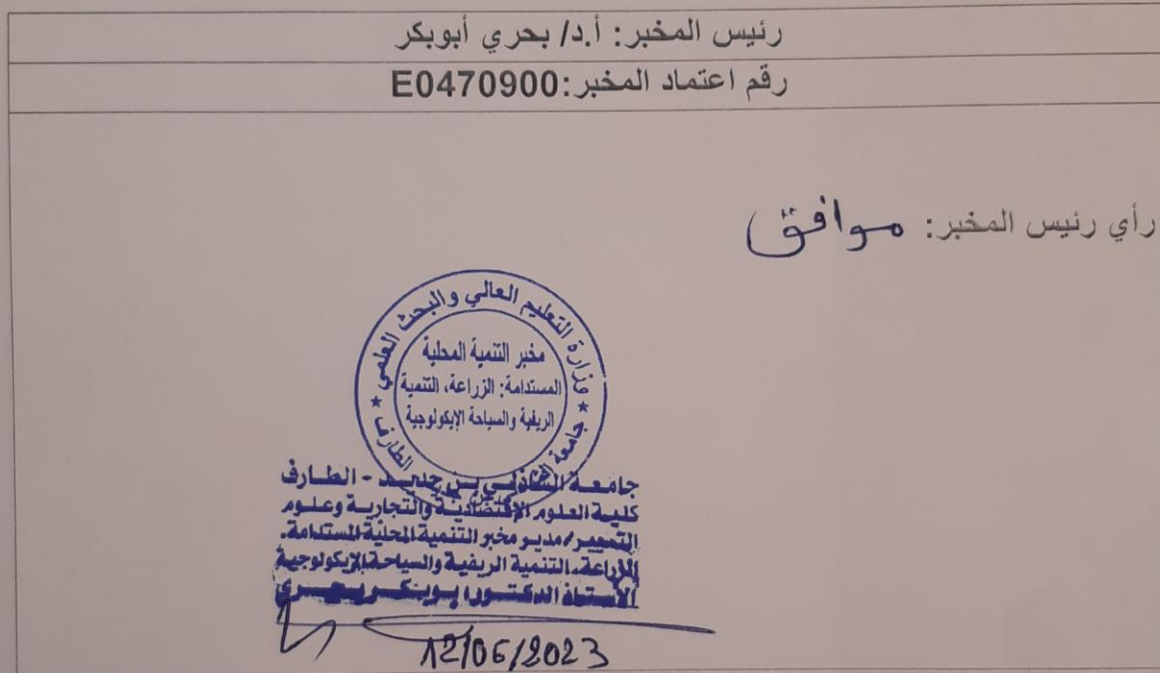 رئيس المخبر: أ.د/ بحري أبوبكر
رقم اعتماد المخبر:E0470900
رأي رئيس المخبر: موافق
وزارة التعليم العالي والبحث العلمي
مخبر التنمية المحلية
المستدامة: الزراعة، التنمية
الريفية والسياحة الإيكولوجية
جامعة الطارف
جامعة الشاذلي بن جديد - الطارف
كلية العلوم الإقتصادية والتجارية وعلوم
التسيير/مدير مخبر التنمية المحلية المستدامة.
الزراعة، التنمية الريفية والسياحة الإيكولوجية
الأستاذ الدكتور، بوبكر بحري
12/06/2023